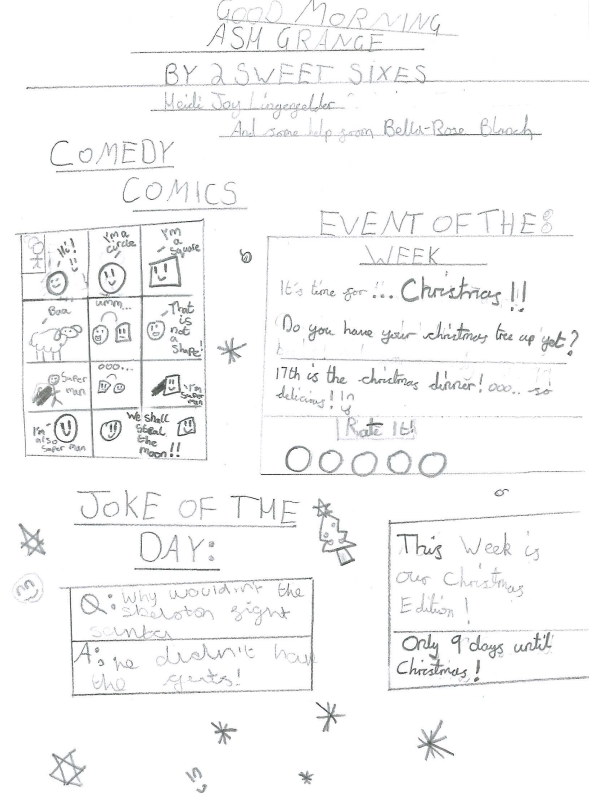 GOOD MORNING
ASH GRANGE
BY 2 SWEET SIXES
Heidi Joy Lingengelder
And some help from Bella-Rose Blanch
COMEDY
COMICS
Hi!
I'm a
circle
I'm
a
square
Baa
umm...
That
is
not
a
shape!
Super
man
ooo...
I'm
super
man
I'm
also
super man
We shall
steal
the
moon!!
EVENT OF THE
WEEK
It's time for... Christmas!!
Do you have your christmas tree up yet?
17th is the christmas dinner! ooo.. so
delicious!!
Rate It!
JOKE OF THE
DAY:
Q: Why wouldn't the
skeleton fight
santa
A: he didn't have
the guts!
This Week is
our Christmas
Edition!
Only 9 days until
Christmas!